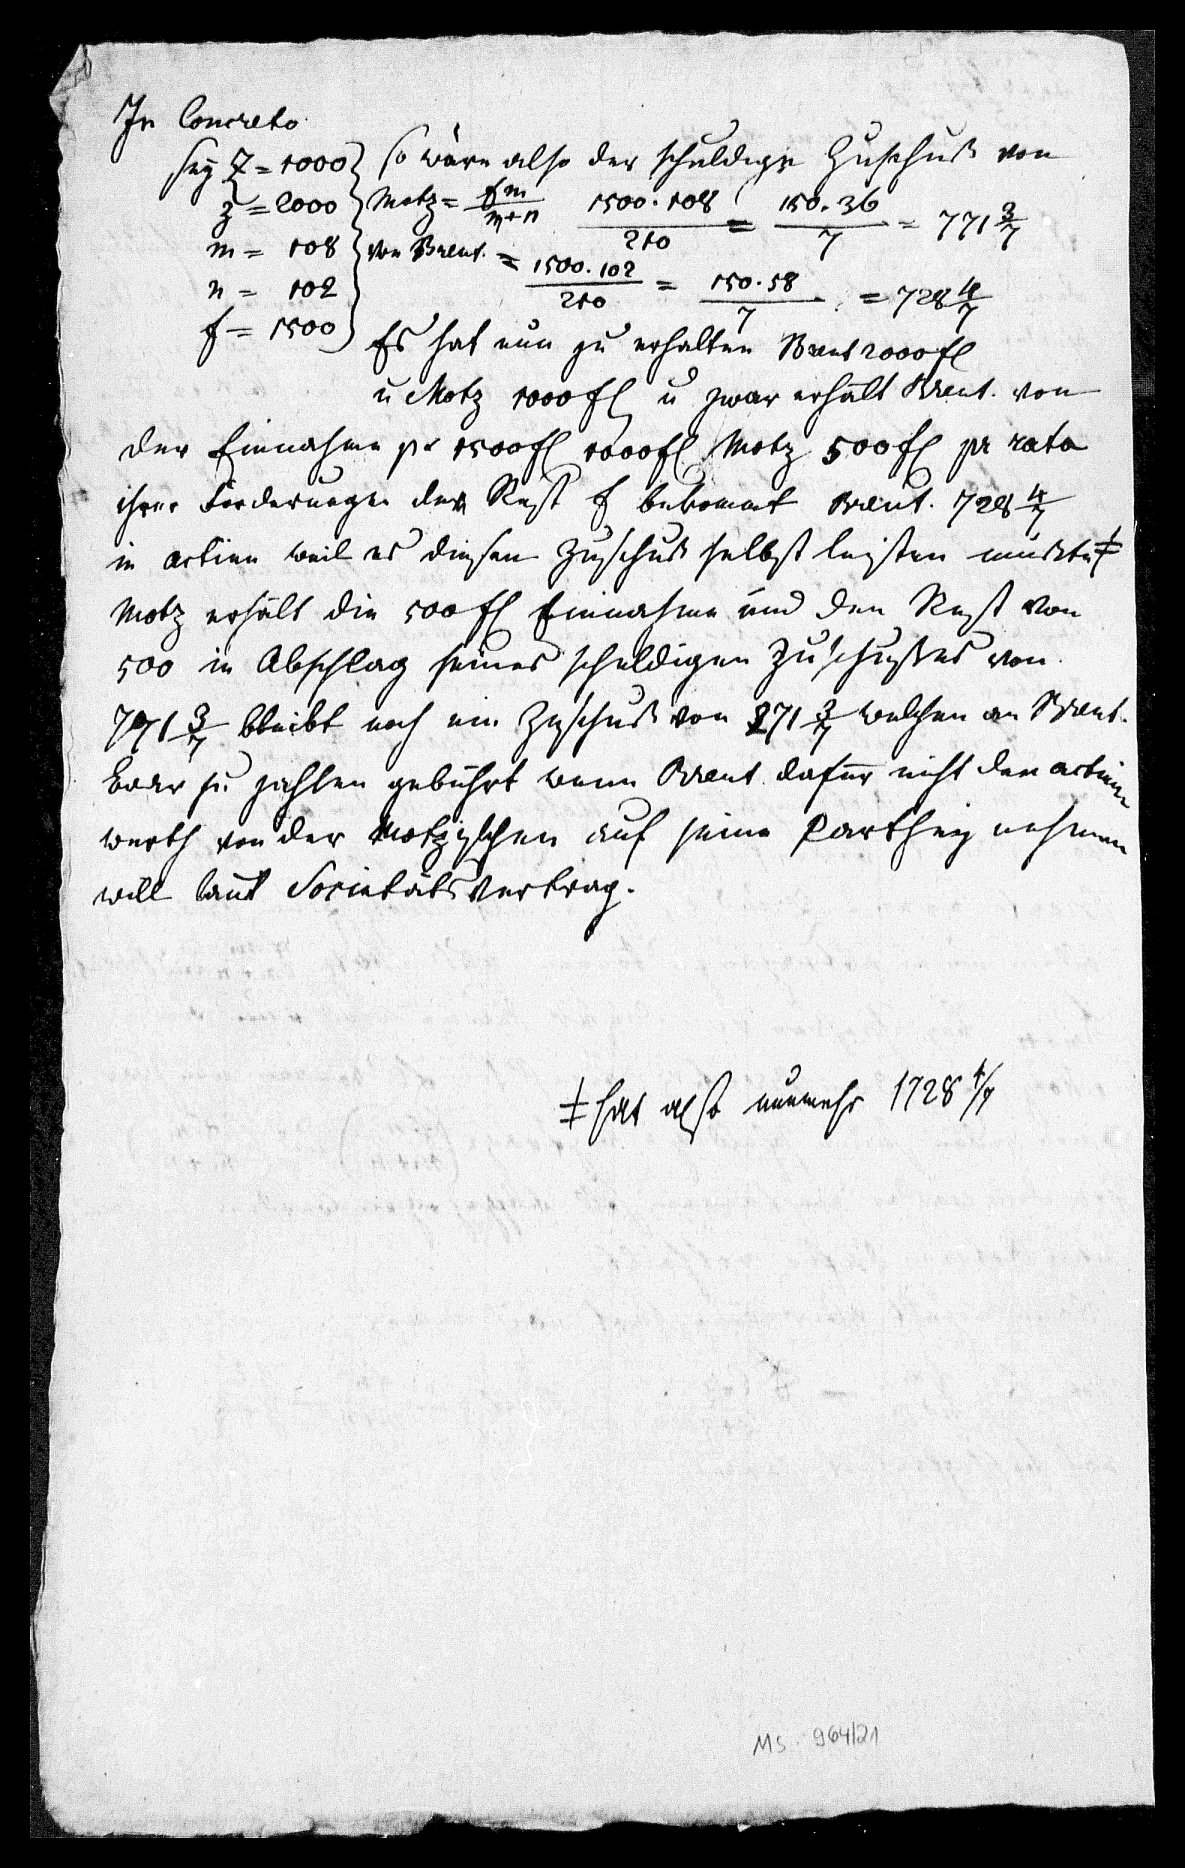 In Concreto
sey Z = 1000 so wäre also der schuldige Zuschuß von
z = 2000 Motz = fm/m+n 1500.108/210 = 150.36/7 = 771 3/7
m = 108 von Brent. = 1500.102/210 = 150.58/7 = 728 4/7
n = 102
f = 1500
Es hat nun zu erhalten Brent 2000 fl
u Motz 1000 fl u zwar erhält Brent. von
der Einnahme pr 1500 fl 1000 fl Motz 500 fl pr rata
ihrer Forderungen der Rest f bekommt Brent. 728 4/7
in actien weil er diesen Zuschuß selbst leisten müßte ‡
Motz erhält die 500 fl Einnahme und den Rest von
500 in Abschlag seines schuldigen Zuschußes von
771 3/7 bleibt noch ein Zuschuß von 271 3/7 welchen an Brent.
baar zu zahlen gebührt wenn Brent dafür nicht den actien
werth von der Motzischen auf seine Parthey nehmen
will laut Societätsvertrag.
‡ hat also nunmehr 1728 4/7
MS. 964/21